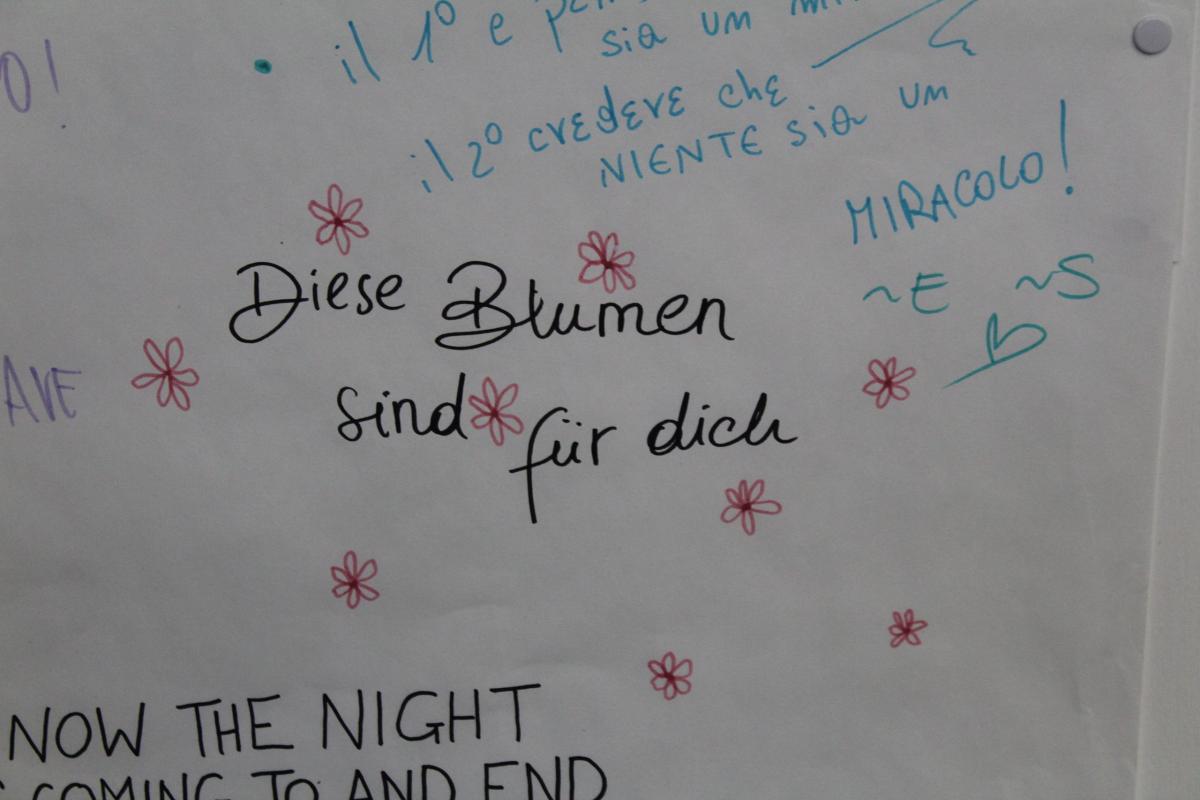 O!
il 1° e
sia um
il 2° credere che
NIENTE sia um
MIRACOLO!
~E ~S
Diese Blumen
sind für dich
AVE
NOW THE NIGHT
COMING TO AND END